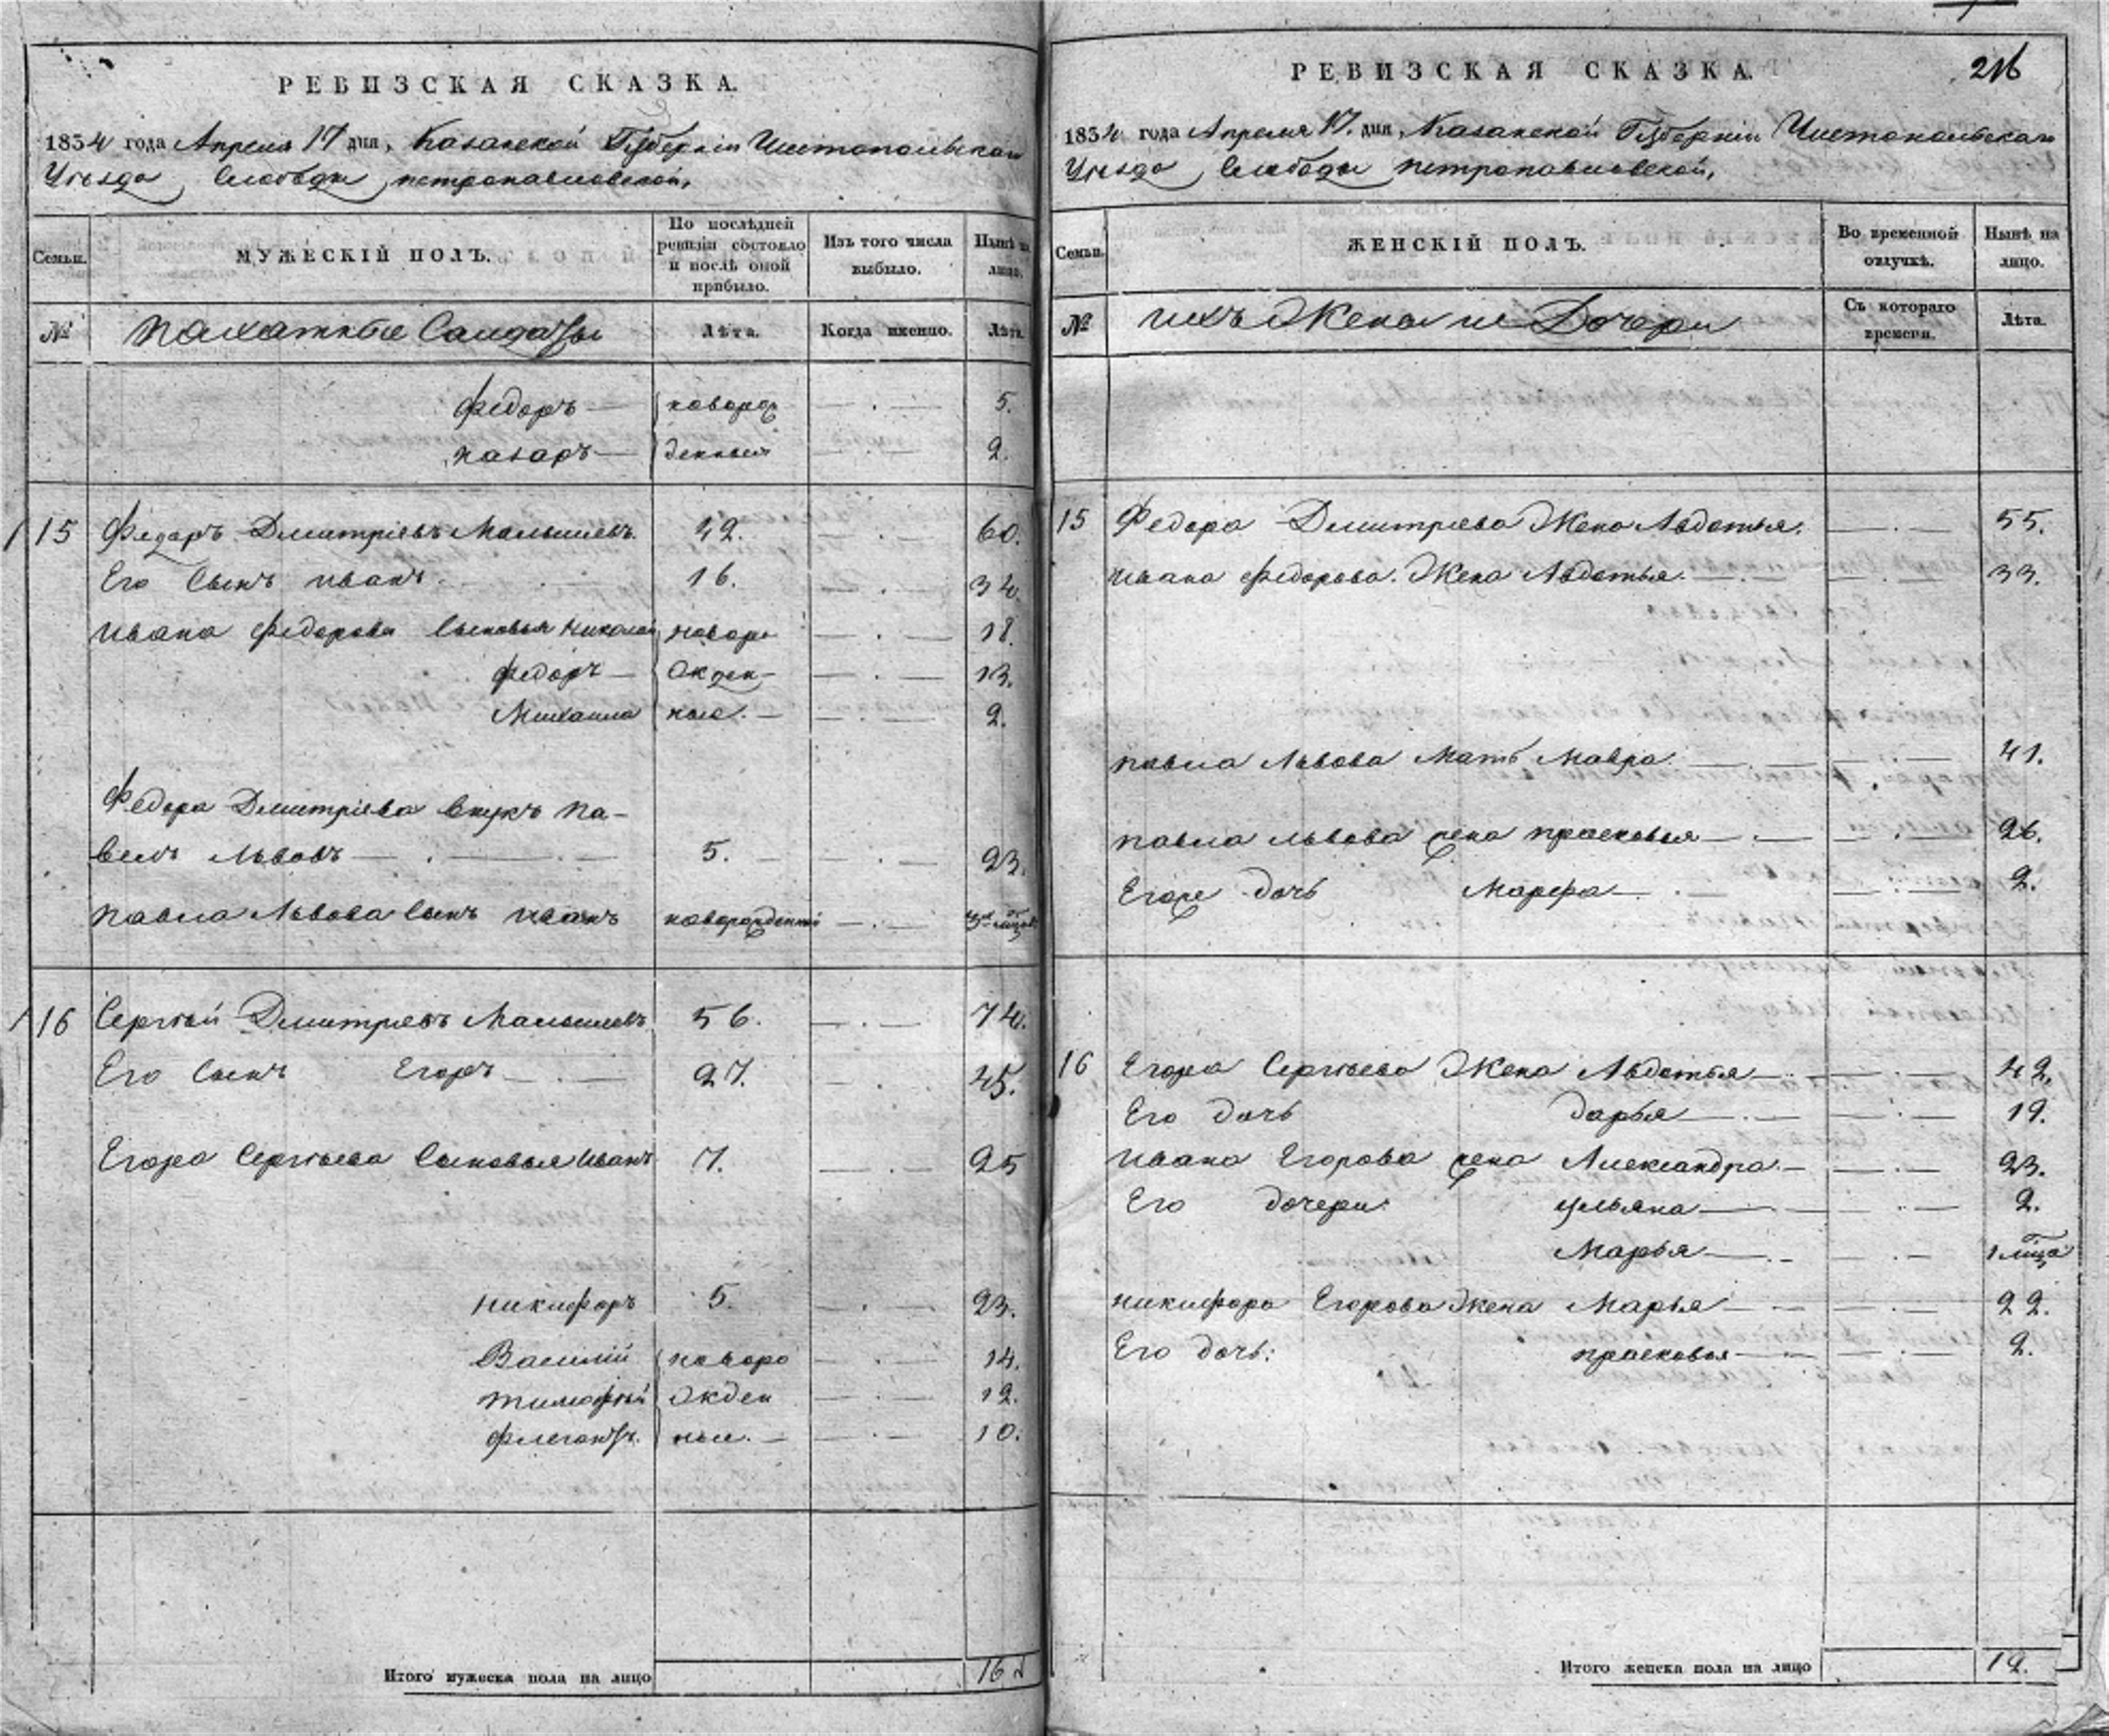 РЕВИЗСКАЯ СКАЗКА.
1834 года Апреля 17 дня, Казанской Губерніи Чистопольскаго
Уѣзда Слободы петропавловской,
Семьи.
МУЖЕСКІЙ ПОЛЪ.
По послѣдней ревизіи состояло и послѣ оной прибыло.
Изъ того числа выбыло.
Нынѣ на лицо.
№
пахатные Салдаты
Лѣта.
Когда именно.
Лѣта.
Федоръ — новорож — . — 5.
назаръ — денныя — . — 2.
15 Федоръ Дмитріевъ Малышевъ. 42. — . — 60.
Его Сынъ иванъ. 16. — . — 34.
ивана Федорова Сыновья николай новоро — . — 18.
Федоръ — жден- — . — 13.
Михаила ные. — . — 2.
Федора Дмитріева внукъ па-
велъ Львовъ — . — 5. — . — 23.
павла Львова Сынъ иванъ новорожденный — . —
16 Сергѣй Дмитріевъ Малышевъ 56. — . — 74.
Его Сынъ Егоръ — . — 27. — . 45.
Егора Сергѣева Сыновья иванъ 7. — . — 25
никифоръ 5. — . — 23.
Василій новоро — . — 14.
тимофѣй жден — . — 12.
Флегонтъ. ные. — . — 10.
Итого мужеска пола на лицо 16
РЕВИЗСКАЯ СКАЗКА.
216
1834 года Апреля 17. дня, Казанской Губерніи Чистопольскаго
Уѣзда Слободы петропавловской,
Семьи.
ЖЕНСКІЙ ПОЛЪ.
Во временной отлучкѣ.
Нынѣ на лицо.
№
ихъ Жены и Дочери
Съ котораго времени.
Лѣта.
15 Федора Дмитріева Жена Авдотья. — . — 55.
ивана Федорова. Жена Авдотья. — . — 33.
павла Львова Мать Мавра. — . — 41.
павла львова жена прасковья — . — 26.
Егоже дочь Марфа — . — 2.
16 Егора Сергѣева Жена Авдотья — . — 42.
Его дочь дарья — . — 19.
ивана Егорова жена Александра. — . — 23.
Его дочери: ульяна — . — 2.
Марья — . — 1 мца
никифора Егорова Жена Марья — . — 22.
Его дочь: прасковья — . — 2.
Итого женска пола на лицо 12.